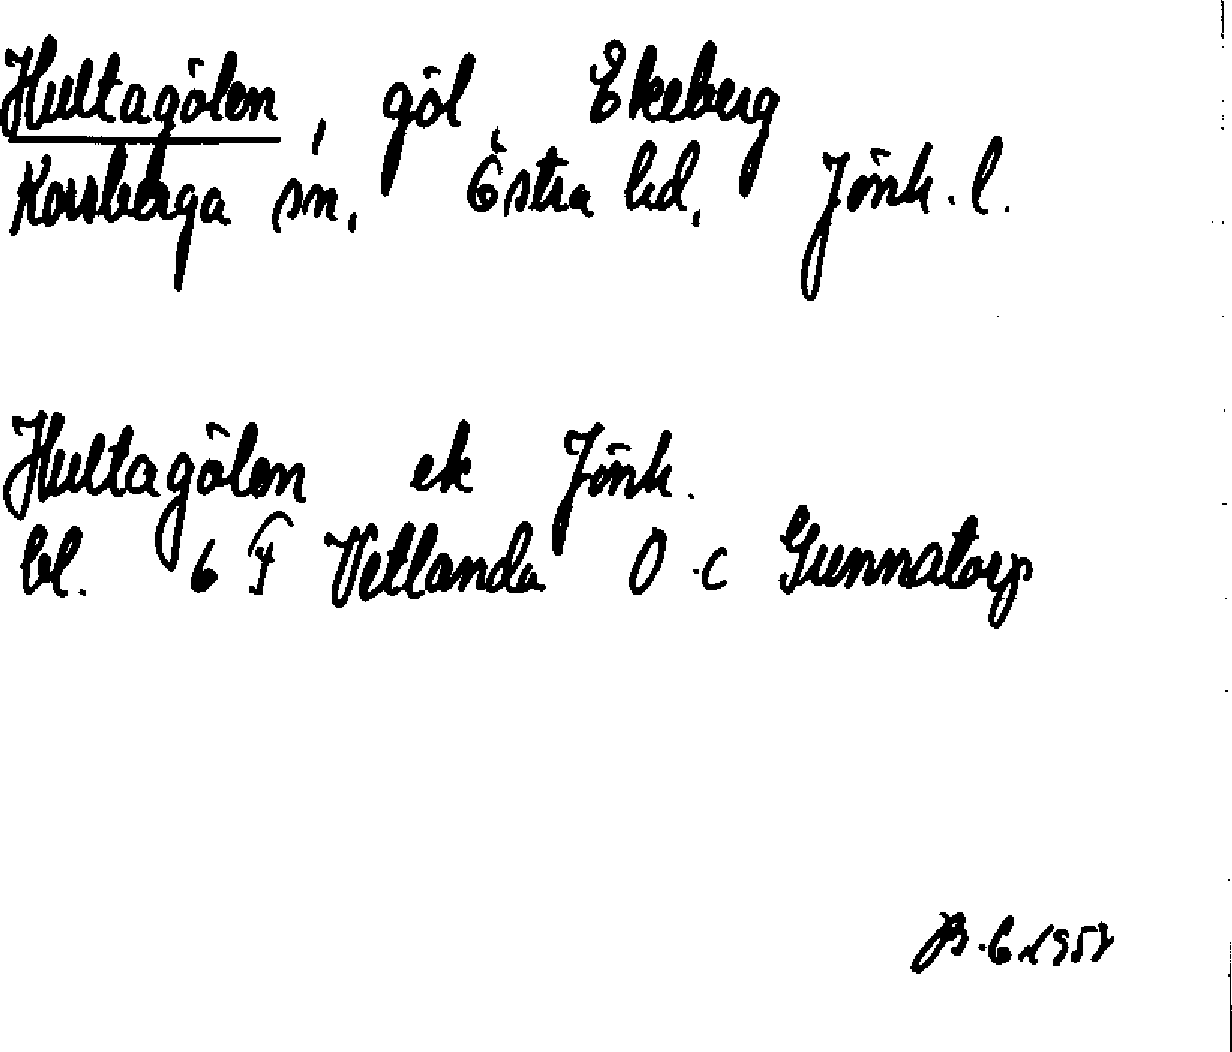 Hultagölen, göl Ekeberg
Korsberga sn. Östra hd. Jönk. l.
Hultagölen ek Jönk.
bl. 6 F Vetlanda O c Gunnatorp
1957